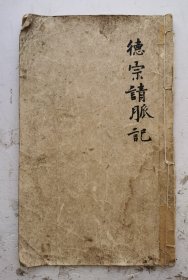 德宗請脈記